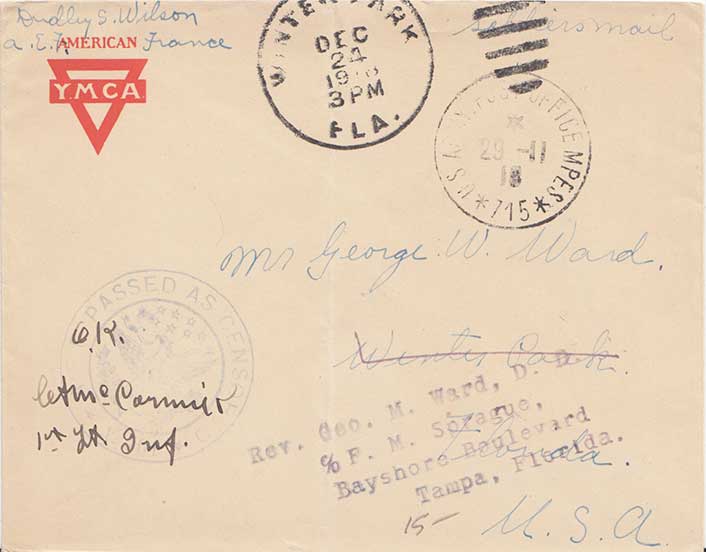 Dudley S. Wilson
A. E. F. France
AMERICAN
Y.M.C.A.
WINTER PARK
DEC
24
1918
3 PM
FLA.
Soldiers mail
U.S. ARMY POST OFFICE MPES
29-11
18
*715*
Mr George W. Ward.
Winter Park.
Florida.
U.S.A.
PASSED AS CENSORED
O.K.
1st Lt Inf.
Rev. Geo. M. Ward, D. D.
c/o F. M. Sprague,
Bayshore Boulevard
Tampa, Florida.
15-